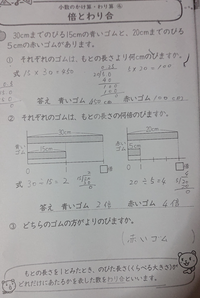 小数のかけ算・わり算 ⑥
倍とわり合
30cmまでのびる15cmの青いゴムと、20cmまでのびる
5cmの赤いゴムがあります。
① それぞれのゴムは、もとの長さより何cmのびますか。
式 15×30=450
5×20=100
答え 青いゴム 450cm 赤いゴム 100cm
② それぞれのゴムは、もとの長さの何倍のびますか。
青いゴム 30cm 15cm □倍
赤いゴム 20cm 5cm □倍
式 30÷15=2 20÷5=4
答え 青いゴム 2倍 赤いゴム 4倍
③ どちらのゴムの方がよりのびますか。
赤いゴム
もとの長さを1とみたとき、のびた長さ(くらべる大きさ)が
どれだけにあたるかを表した数をわり合といいます。